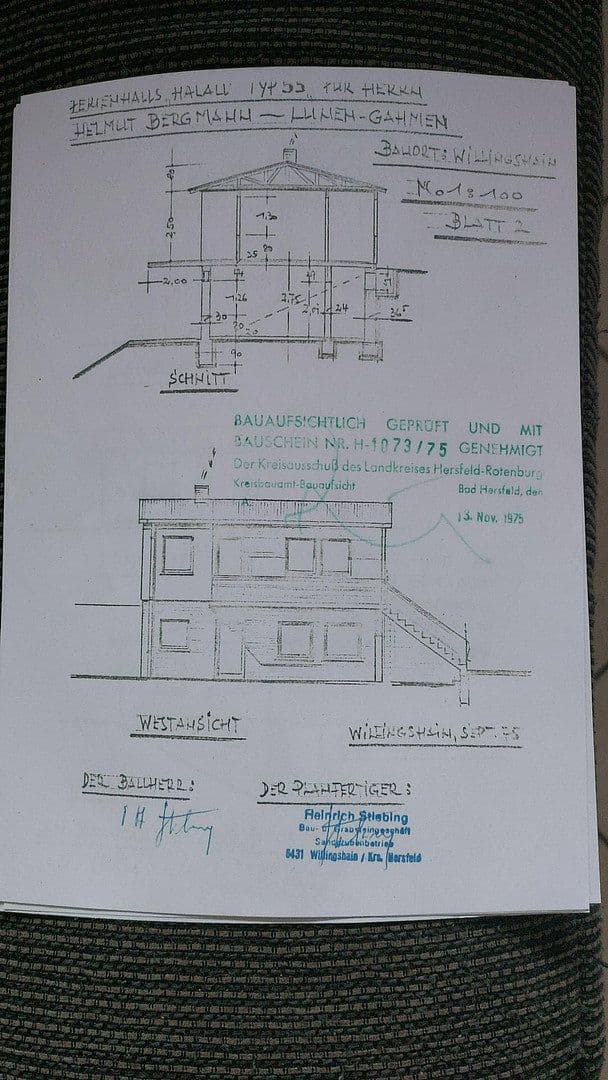 FERIENHAUS „HALALI" TYP 55, FÜR HERRN
HELMUT BERGMANN — LÜNEN-GAHMEN
BAUORT: WILLINGSHAIN
M. 1:100
BLATT 2
2,50
1,30
35 80
2,00
1,26
2,75
2,01
24
51
30
36⁵
20
90
SCHNITT
BAUAUFSICHTLICH GEPRÜFT UND MIT
BAUSCHEIN NR. H-1073/75 GENEHMIGT
Der Kreisausschuß des Landkreises Hersfeld-Rotenburg
Kreisbauamt-Bauaufsicht
Bad Hersfeld, den
13. Nov. 1975
WESTANSICHT
WILLINGSHAIN, SEPT. 75
DER BAUHERR:
DER PLANFERTIGER:
Heinrich Stiebing
Bau- u. Grabsteingeschäft
Sandgrubenbetrieb
6431 Willingshain / Krs. Hersfeld